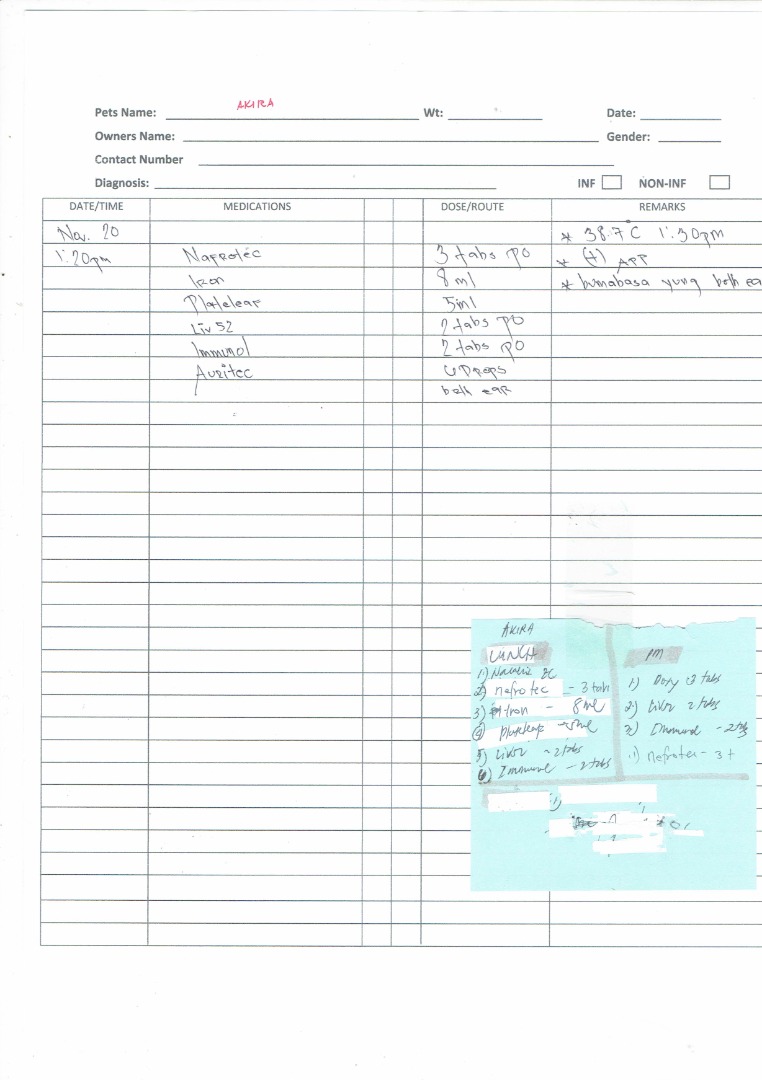 AKIRA
Pets Name: Wt: Date:
Owners Name: Gender:
Contact Number
Diagnosis: INF NON-INF
DATE/TIME MEDICATIONS DOSE/ROUTE REMARKS
Nov. 20 * 38.7 C 1:30pm
1:20pm Nafrotec 3 tabs PO * (+) APP
Iron 8 ml * bumabasa yung both ea
Plateleaf 5ml
Liv 52 2 tabs PO
Immunol 2 tabs PO
Auritec Drops
both ear
AKIRA
LUNCH
2) nefrotec - 3 tab
3) iron - 8 ml
5) Liv52 - 2 tabs
6) Immunol - 2 tabs
PM
1) Doxy 3 tabs
2) Liv52 2 tabs
3) Immunol - 2 tabs
1) nefrotec - 3 t